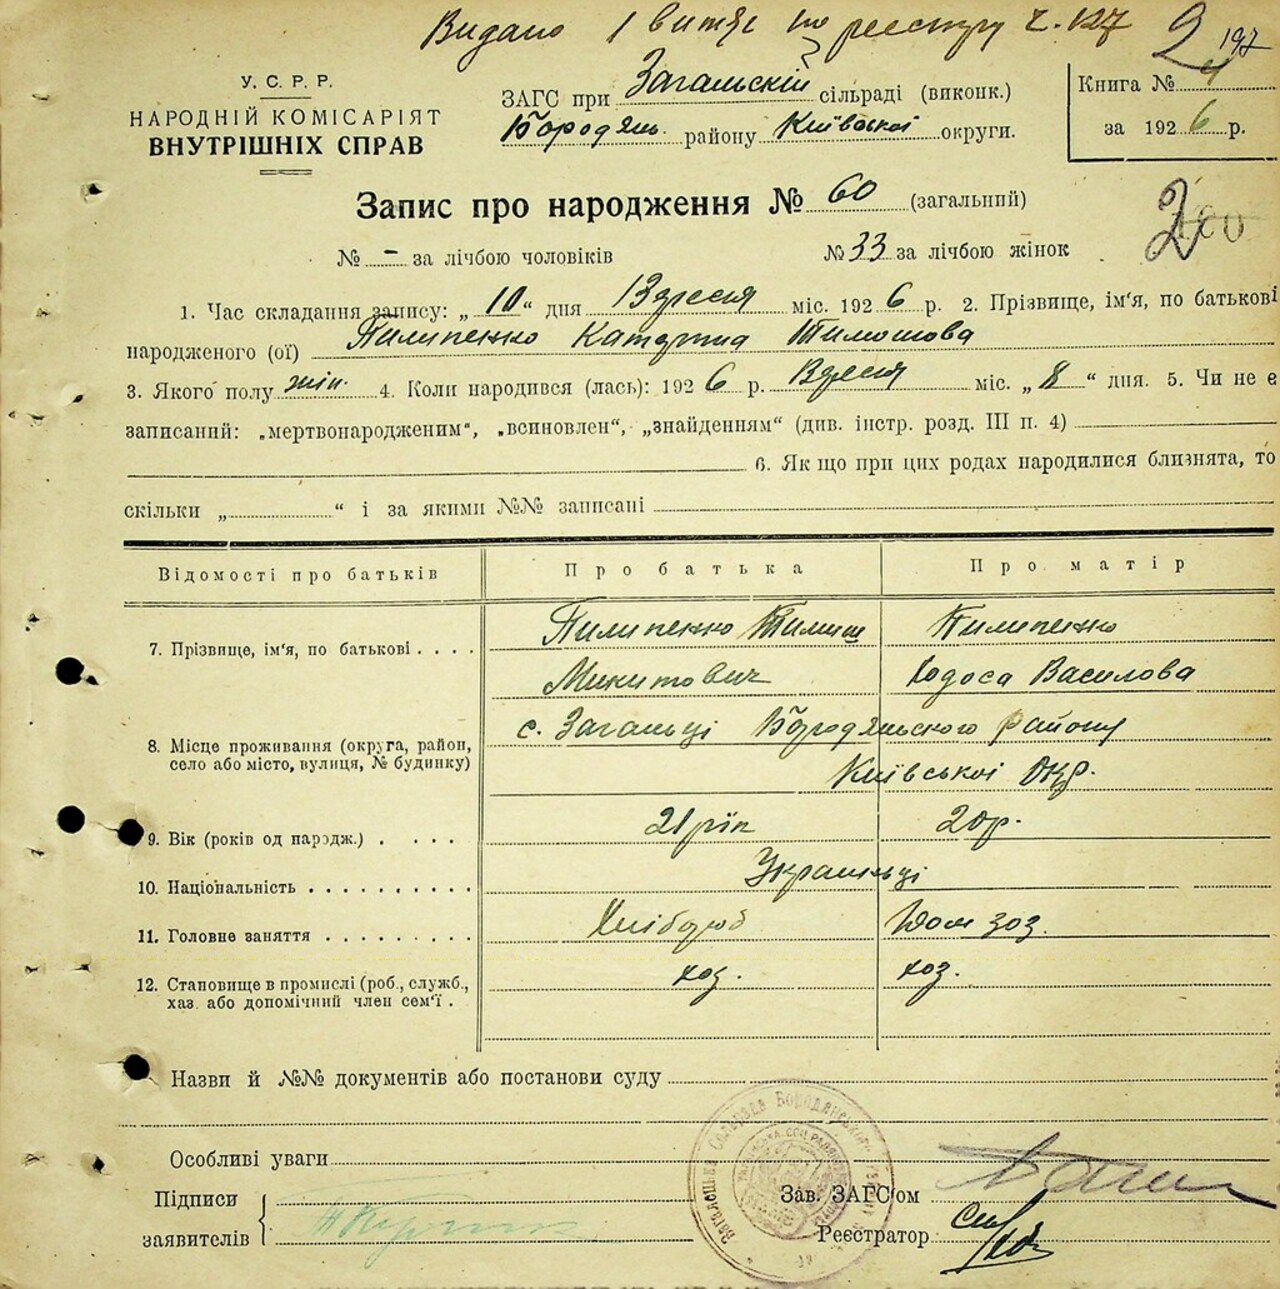 Видано 1 витяг по реєстру ч. 127
2
197
У. С. Р. Р.
НАРОДНІЙ КОМІСАРІЯТ
ВНУТРІШНІХ СПРАВ
ЗАГС при Загальскій сільраді (виконк.)
Бородянь. району Київської округи.
Книга № 4
за 1926 р.
Запис про народження № 60 (загальний)
2
№ - за лічбою чоловіків № 33 за лічбою жінок
1. Час складання запису: „10“ дня Вдресня міс. 1926 р. 2. Прізвище, ім'я, по батькові
народженого (ої) Пилипенко Катерина Тимошова
3. Якого полу жін. 4. Коли народився (лась): 1926 р. Вдресня міс. „8“ дня. 5. Чи не є
записаний: „мертвонародженим“, „всиновлен“, „знайденням“ (див. інстр. розд. III п. 4)
6. Як що при цих родах народилися близнята, то
скільки „ “ і за якими №№ записані
Відомості про батьків Про батька Про матір
7. Прізвище, ім'я, по батькові . . . . Пилипенко Тимиш Пилипенко
Микитович Ходоса Василова
8. Місце проживання (округа, район, село або місто, вулиця, № будинку) с. Загальці Бородяньского району
Київської окр.
9. Вік (років од народж.) . . . . 21 рік 20 р.
10. Національність . . . . . . . . . . Україньці
11. Головне заняття . . . . . . . . . Хлібороб Дом хоз.
12. Становище в промислі (роб., служб., хоз. хоз.
хаз. або допомічний член сем'ї .
Назви й №№ документів або постанови суду
Особливі уваги
Підписи
заявителів
Зав. ЗАГС'ом
Реєстратор